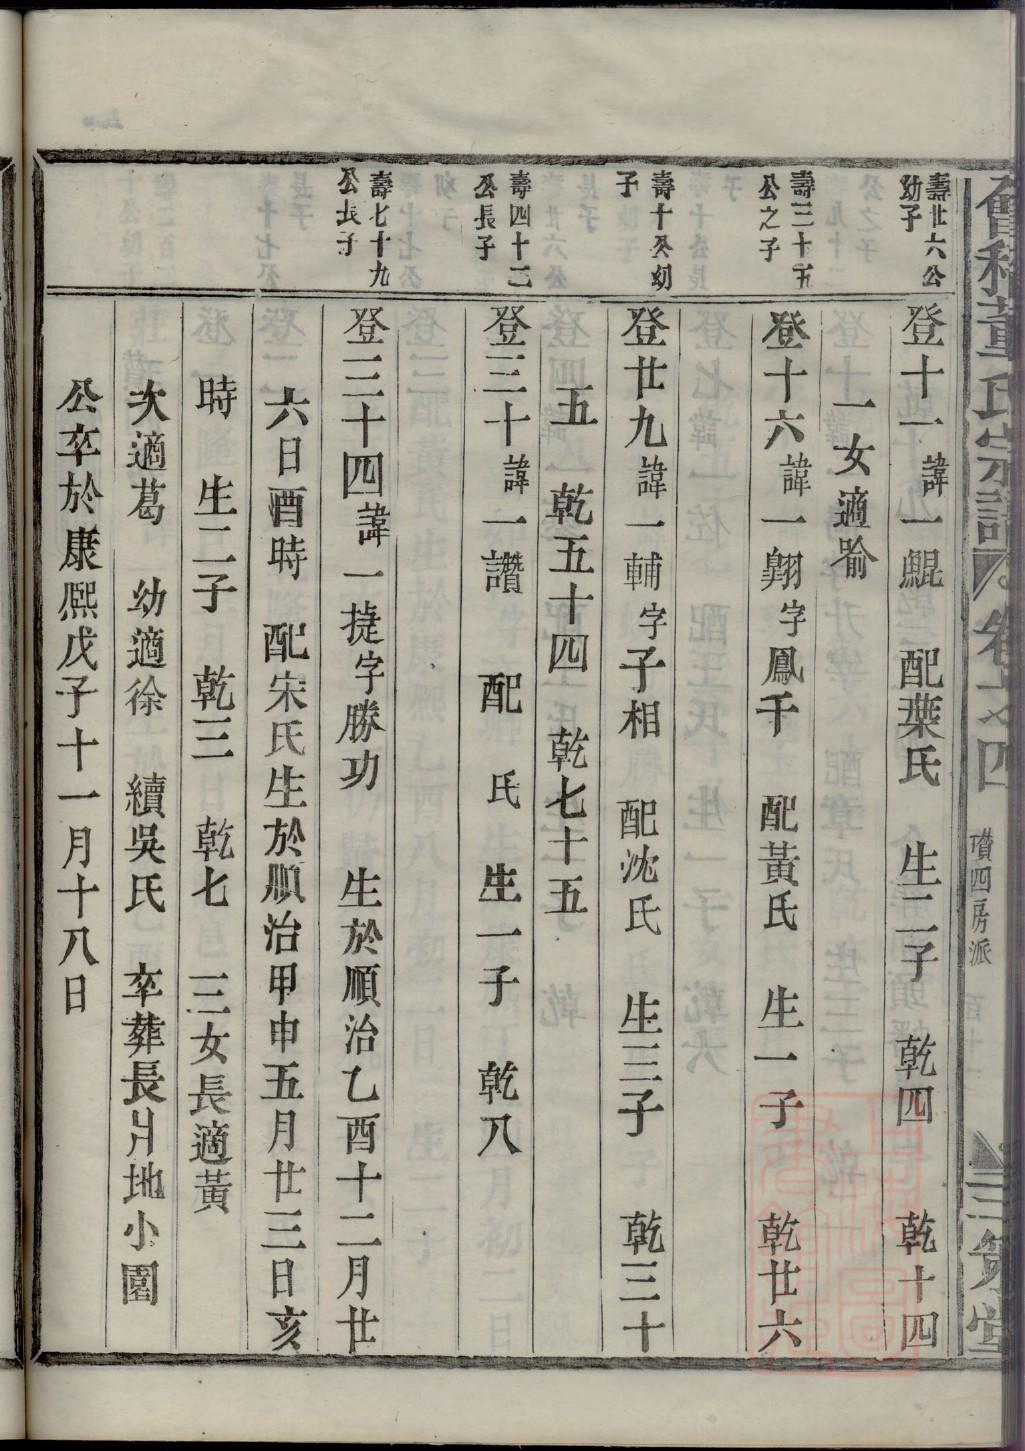 會稽董氏宗譜 卷之四 讚四房派 三策堂
壽廿六公
幼子
登十一諱一鯤 配葉氏 生二子 乾四 乾十四
一女適喻
壽三十五
公之子
登十六諱一翱字鳳千 配黃氏 生一子 乾廿六
壽十公幼
子
登廿九諱一輔字子相 配沈氏 生三子 乾三十
五 乾五十四 乾七十五
壽四十二
公長子
登三十諱一讚 配 氏 生一子 乾八
壽七十九
公長子
登三十四諱一捷字勝功 生於順治乙酉十二月廿
六日酉時 配宋氏生於順治甲申五月廿三日亥
時 生二子 乾三 乾七 三女長適黃
次適葛 幼適徐 續吳氏 卒葬長爿地小園
公卒於康熙戊子十一月十八日